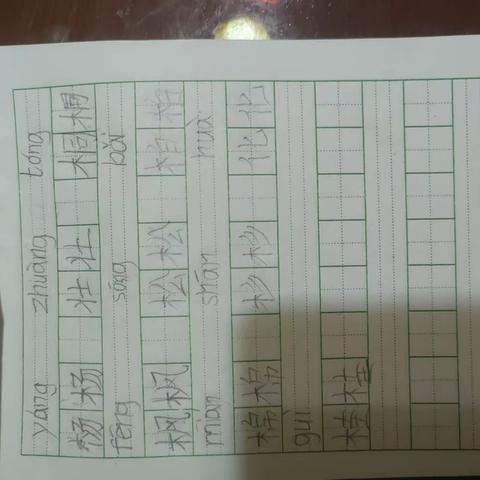 yáng zhuàng tóng
杨杨 壮壮 桐桐
fēng sōng bǎi
枫枫 松松 柏柏
mián shān huà
棉棉 杉杉 化化
guì
桂桂